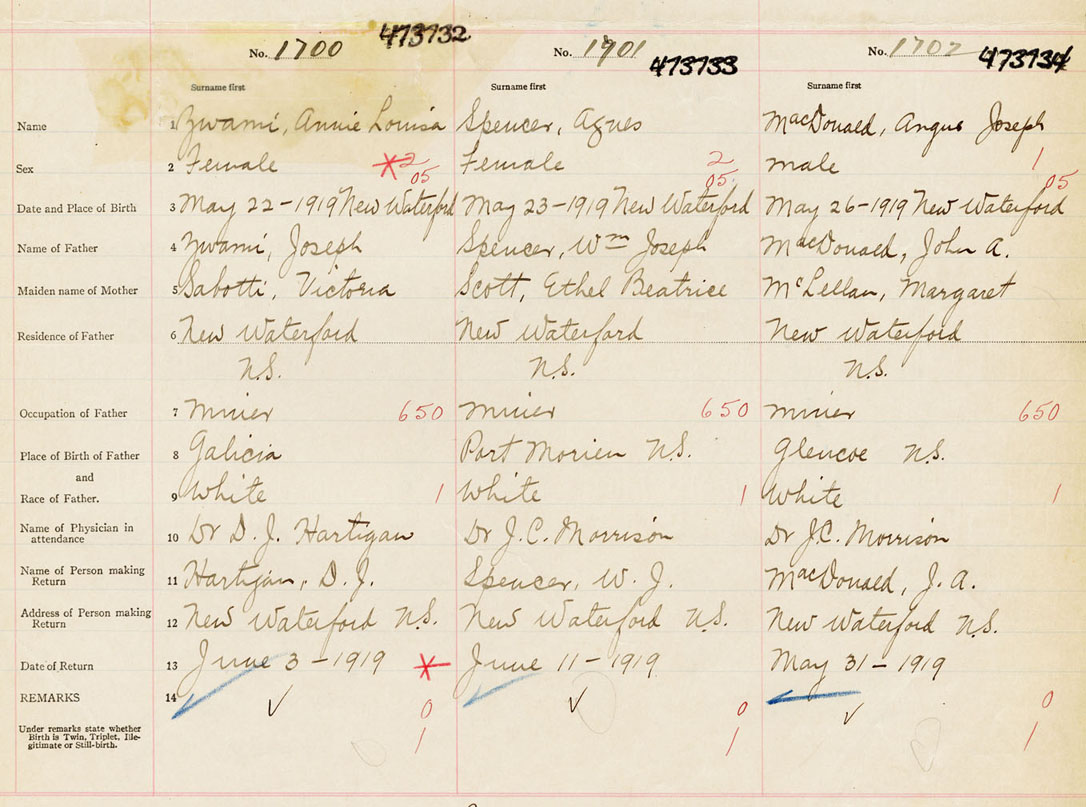 473732
No. 1700 No. 1901 No. 1702
473733 473734
Surname first Surname first Surname first
Name 1 Zwami, Annie Louisa Spencer, Agnes MacDonald, Angus Joseph
Sex 2 Female 2 Female 2 male 1
05 05 05
Date and Place of Birth 3 May 22-1919 New Waterford May 23-1919 New Waterford May 26-1919 New Waterford
Name of Father 4 Zwami, Joseph Spencer, Wm Joseph MacDonald, John A.
Maiden name of Mother 5 Sabotti, Victoria Scott, Ethel Beatrice McLellan, Margaret
Residence of Father 6 New Waterford New Waterford New Waterford
N.S. N.S. N.S.
Occupation of Father 7 miner 650 miner 650 miner 650
Place of Birth of Father 8 Galicia Port Morien N.S. Glencoe N.S.
and
Race of Father. 9 White 1 White 1 White 1
Name of Physician in
attendance 10 Dr D. J. Hartigan Dr J.C. Morrison Dr J.C. Morrison
Name of Person making
Return 11 Hartigan, D. J. Spencer, W. J. MacDonald, J. A.
Address of Person making
Return 12 New Waterford N.S. New Waterford N.S. New Waterford N.S.
Date of Return 13 June 3-1919 June 11-1919 May 31-1919
REMARKS 14
0 0 0
Under remarks state whether
Birth is Twin, Triplet, Ille-
gitimate or Still-birth.
1 1 1